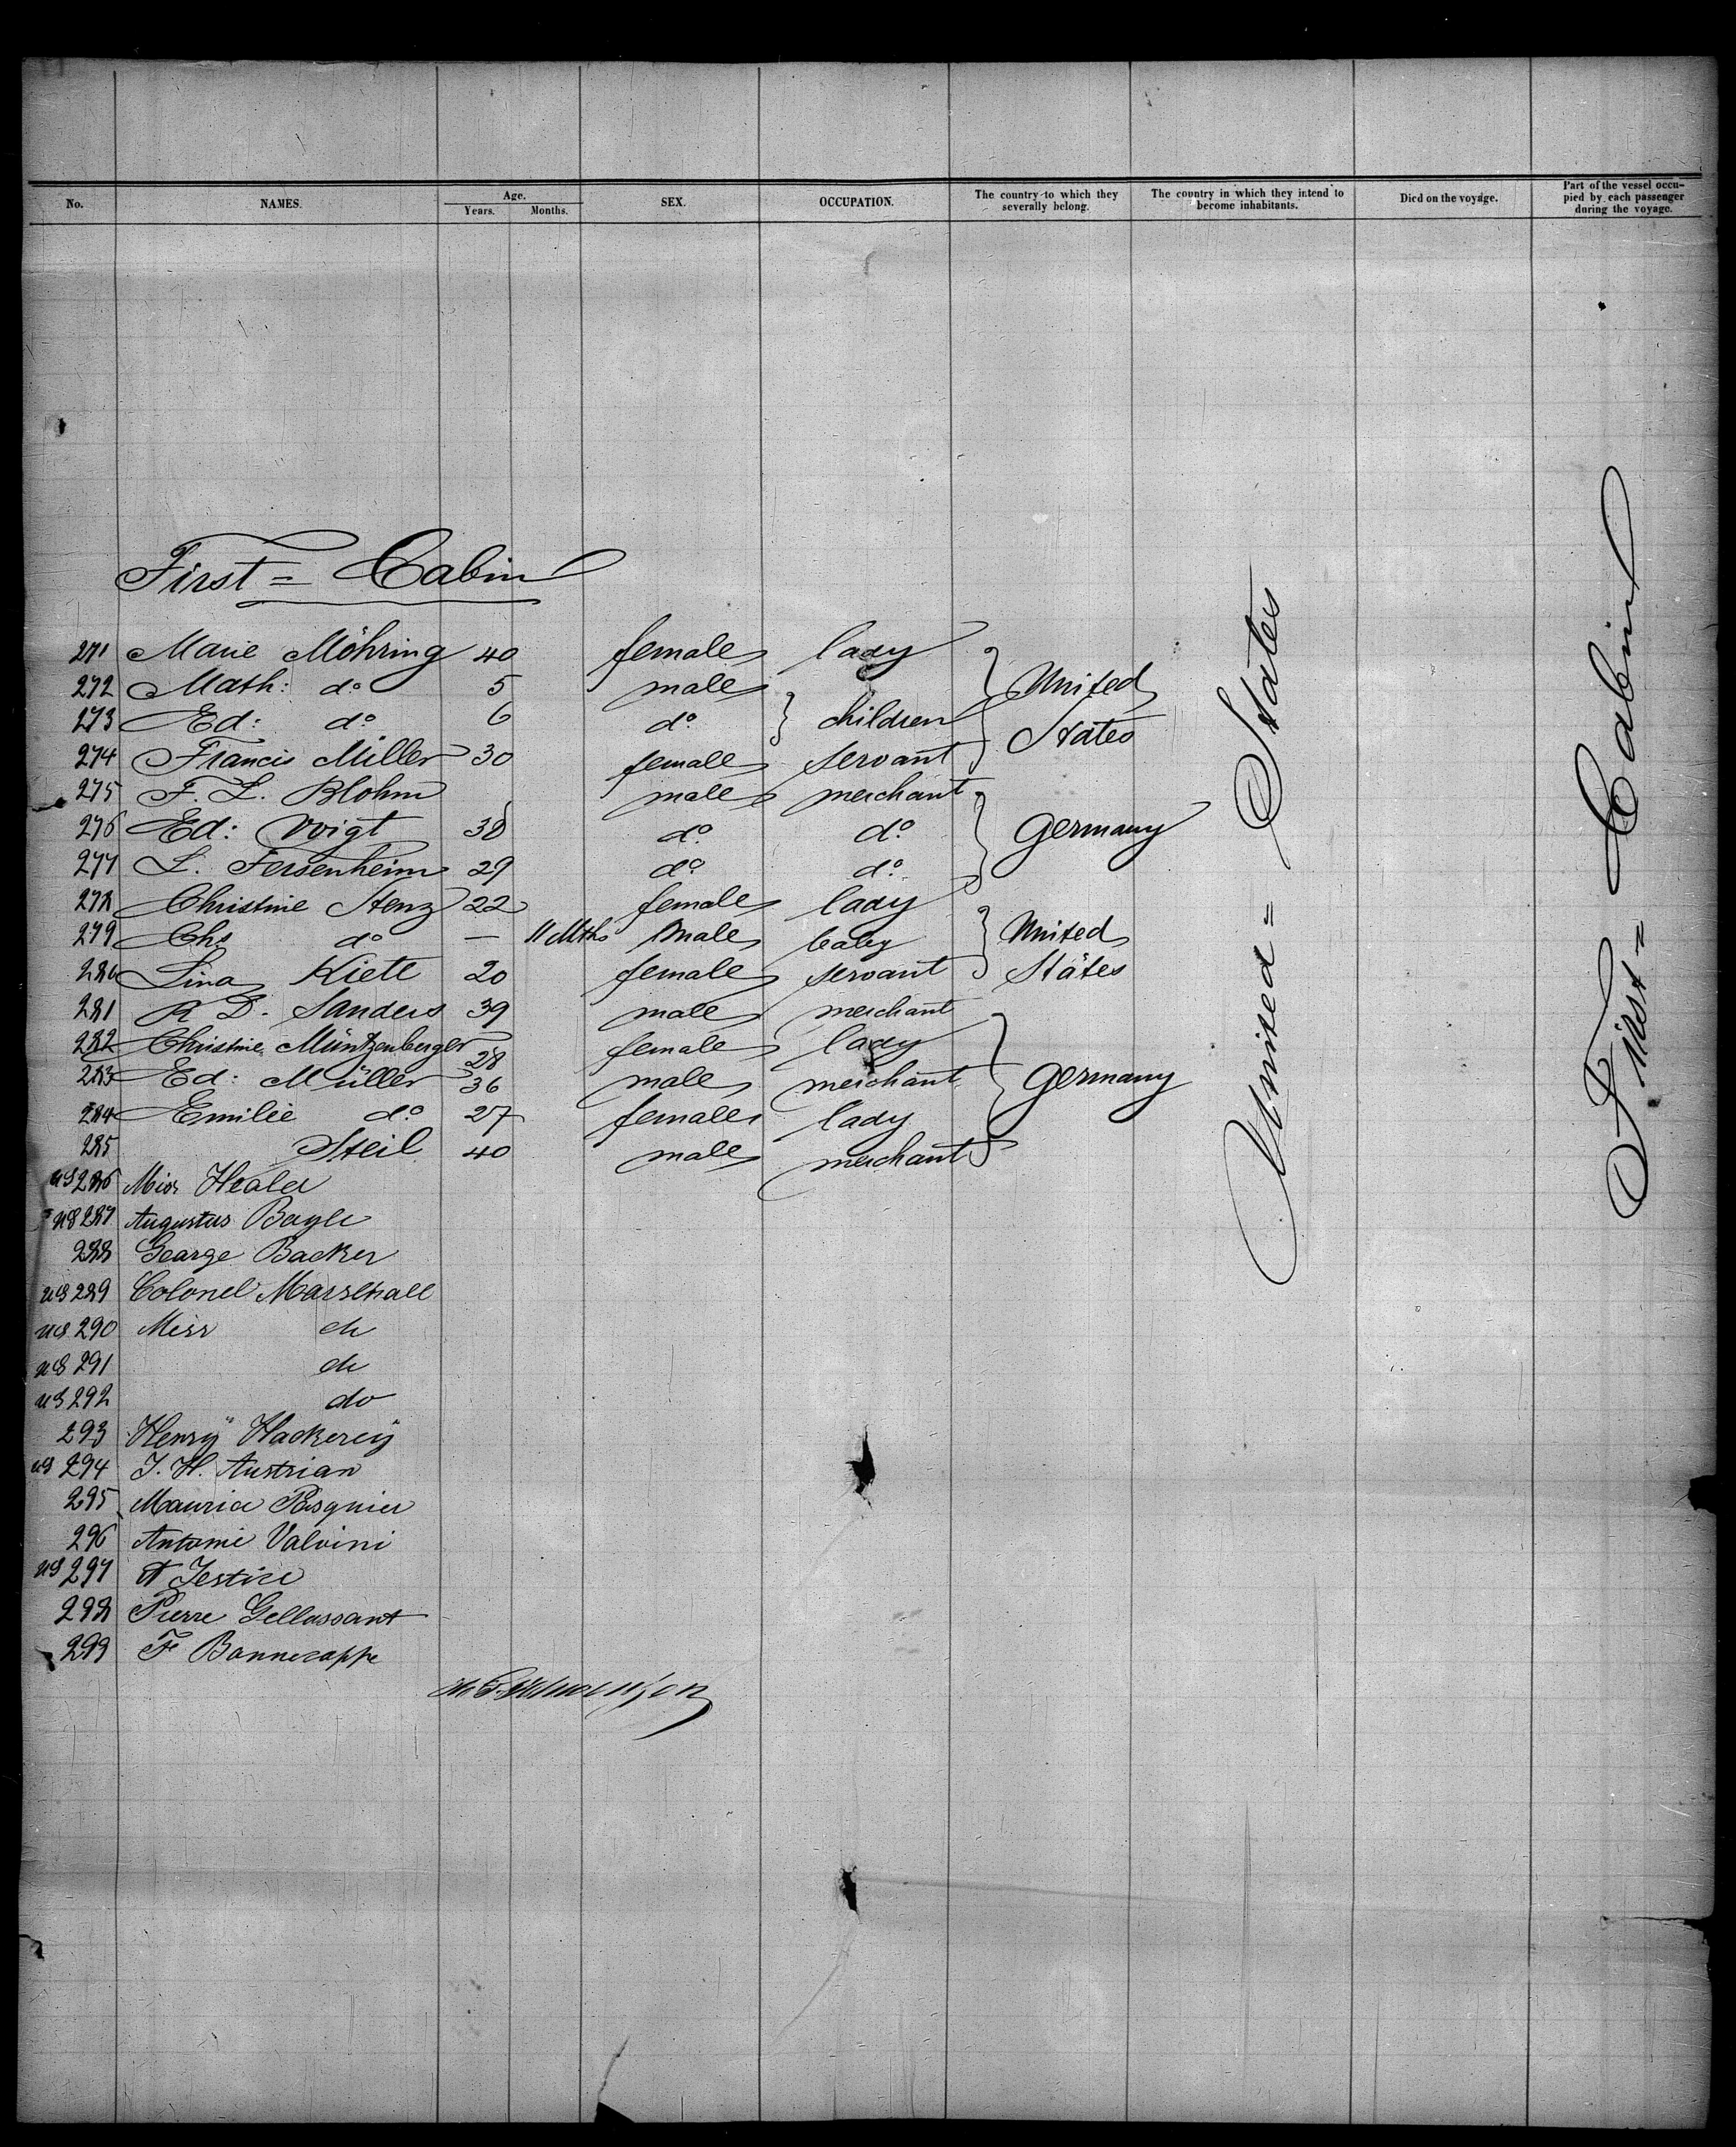 No. NAMES. Age. Years. Months. SEX. OCCUPATION. The country to which they severally belong. The country in which they intend to become inhabitants. Died on the voyage. Part of the vessel occupied by each passenger during the voyage.
First = Cabin
271 Marie Möhring 40 female lady
272 Math: do 5 male United
273 Ed: do 6 do. children States
274 Francis Miller 30 female servant
275 F. L. Blohm male merchant
276 Ed: Voigt 38 do. do. Germany
277 L. Fersenheim 29 do. do.
278 Christine Stenz 22 female lady
279 Chs do — 11 Mths male baby United
280 Lina Kiett 20 female servant States
281 R D. Sanders 39 male merchant
282 Christine Müntzenberger 28 female lady
283 Ed: Müller 36 male merchant Germany
284 Emilie do 27 female lady
285 Steil 40 male merchant
US 286 Miss Healer
US 287 Augustus Bayle
288 George Backer
US 289 Colonel Marschall
US 290 Miss do
US 291 do
US 292 do
293 Henry Hackerey
US 294 J. H. Austrian
295 Maurice Pasquier
296 Antonie Valvini
US 297 A Jestice
298 Pierre Gellassant
299 F Bannecappe
United = States
First = Cabin